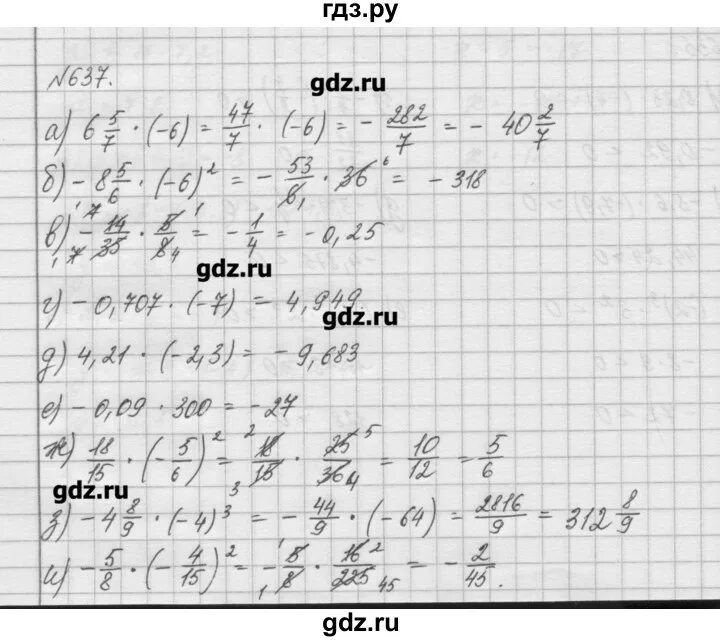 гдз.ру
№637.
gdz.ru
а) 6 5/7 · (-6) = 47/7 · (-6) = - 282/7 = - 40 2/7
б) -8 5/6 · (-6)² = - 53/6 · 36 = -318
в) - 14/35 · 5/8 = - 1/4 = -0,25
gdz.ru
г) -0,707 · (-7) = 4,949.
gdz.ru
д) 4,21 · (-2,3) = -9,683
е) -0,09 · 300 = -27
ж) 18/15 · (- 5/6)² = 18/15 · 25/36 = 10/12 = 5/6
gdz.ru
з) -4 8/9 · (-4)³ = - 44/9 · (-64) = 2816/9 = 312 8/9
и) - 5/8 · (- 4/15)² = - 5/8 · 16/225 = - 2/45.
gdz.ru